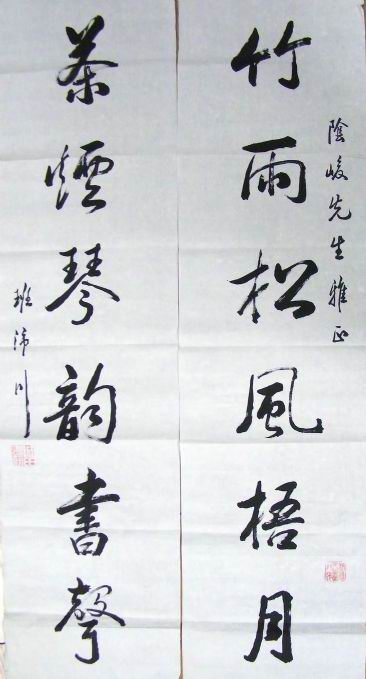 陰峻先生雅正
竹雨松風梧月
茶煙琴韵書聲
班沛川